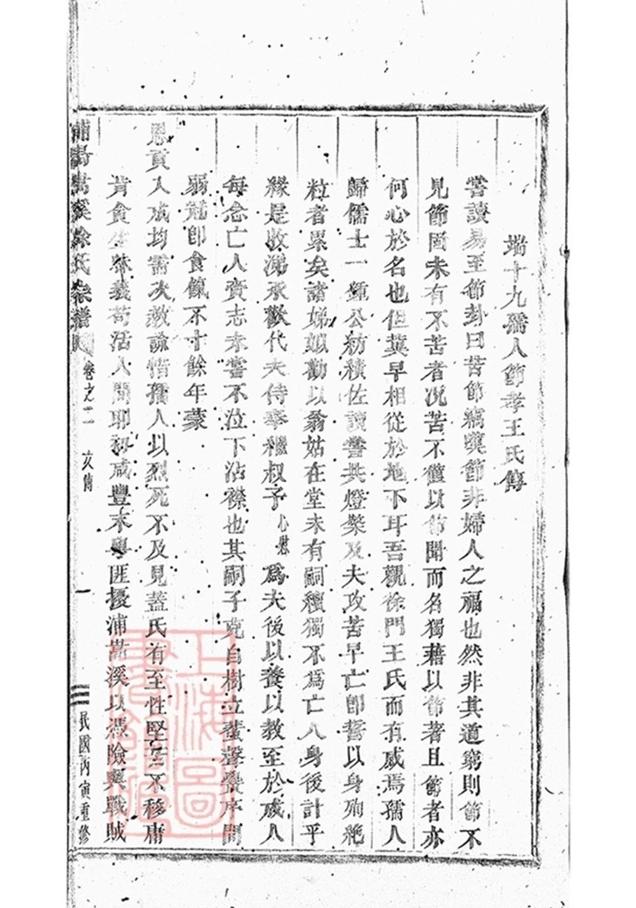 端十九孺人節孝王氏傳
嘗讀易至節卦曰苦節竊嘆節非婦人之福也然非其道窮則節不
見節固未有不苦者況苦不僅以節聞而名獨藉以節著且節者亦
何心於名也但冀早相從於地下耳吾觀徐門王氏而有感焉孺人
歸儒士一種公紡績佐讀書共燈檠及夫攻苦早亡卽誓以身殉絶
粒者累矣諸娣姒勸以翁姑在堂未有嗣續獨不爲亡人身後計乎
緣是收涕承歡代夫侍奉繼叔子心慰爲夫後以養以教至於成人
每念亡人齎志未嘗不泣下沾襟也其嗣子克自樹立蜚聲黌序聞
弱冠卽食餼不寸餘年蒙
恩貢入成均需次教諭惜孺人以烈死不及見蓋氏有至性堅不移庸
肯貪生棄義苟活人間耶初咸豐末粵匪擾浦嵩溪以憑險與戰賊
浦陽嵩溪徐氏宗譜 卷之二 文傳 一 民國丙寅重修
上海圖書館藏